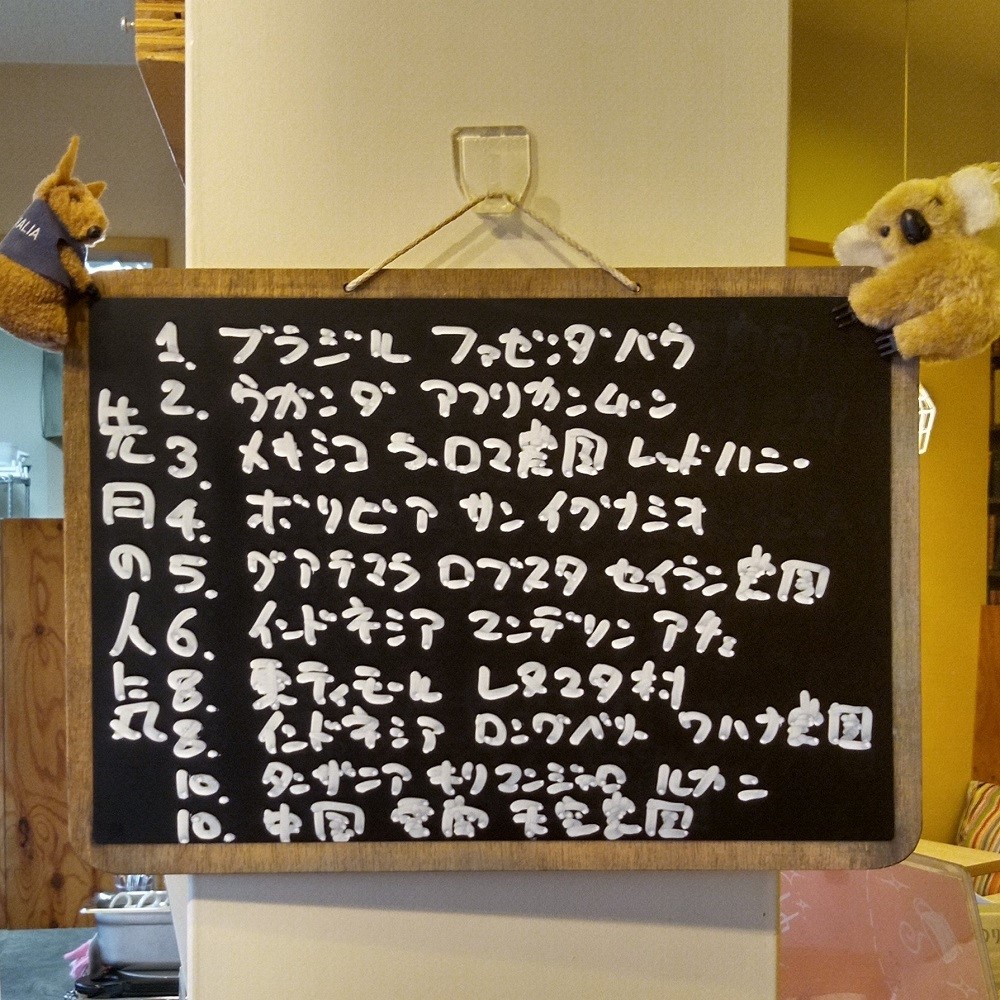 先月の人気
1. ブラジル ファゼンダバウ
2. ウガンダ アフリカンムーン
3. メキシコ ラ・ロマ農園 レッドハニー
4. ボリビア サンイグナシオ
5. グアテマラ ロブスタ セイラン農園
6. インドネシア マンデリン アチェ
8. 東ティモール レタマタ村
8. インドネシア ロングベリー ワハナ農園
10. タンザニア キリマンジャロ ルカニ
10. 中国 雲南 天空農園
ALIA